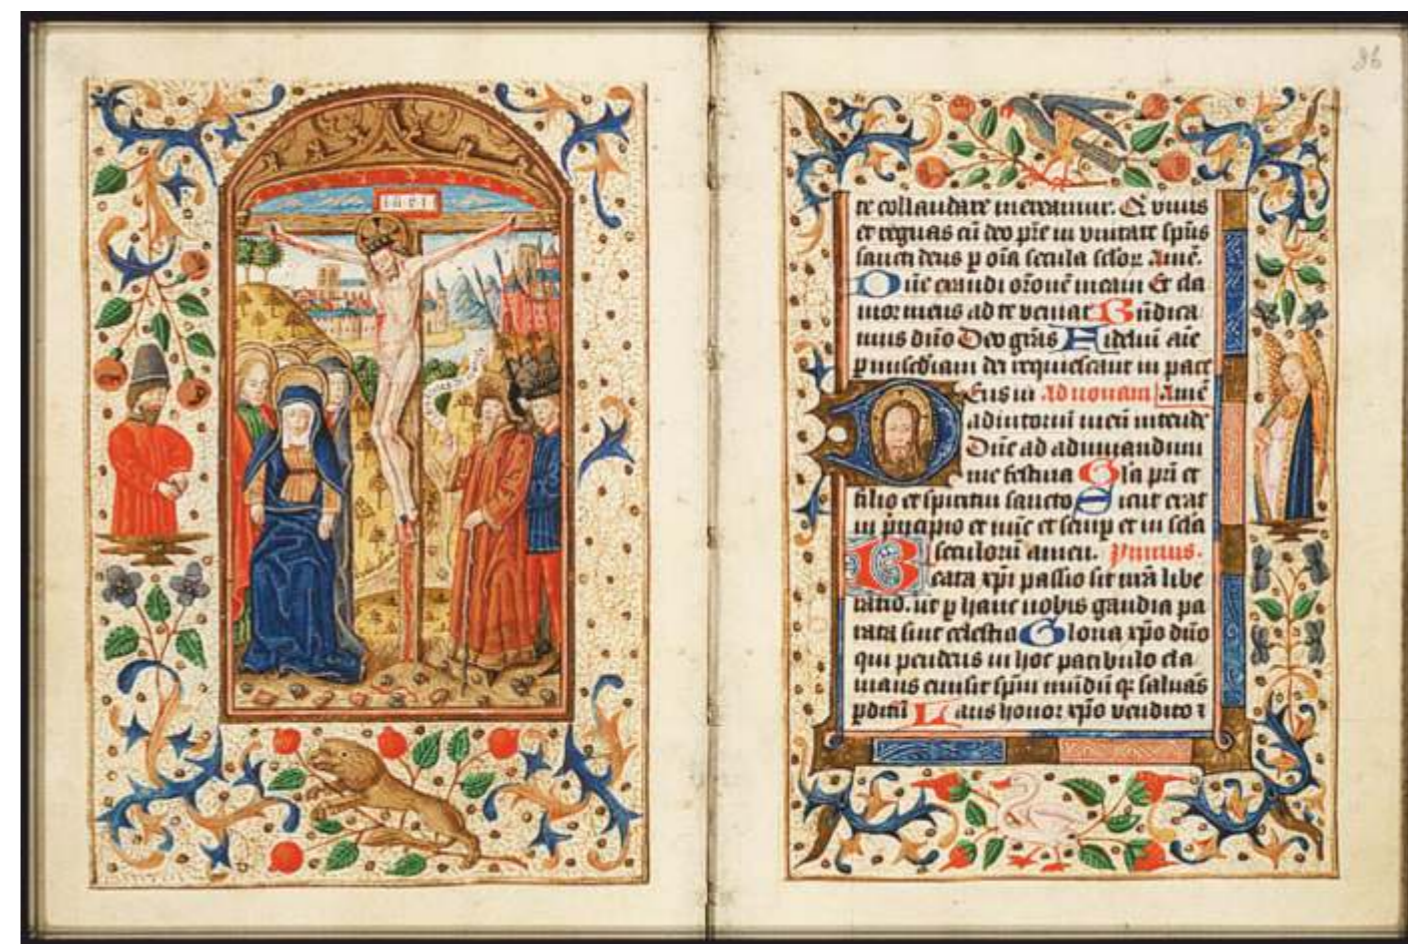 inri
26
te collaudare mereamur. Qi viuis
et regnas cū deo pr̄e in vnitate sp̄us
sancti deus p oīa secula sclor Amē.
Dn̄e exaudi or̄onē meam Et cla
mor meus ad te veniat Bn̄dica
mus dn̄o Deo grās Fideliū aīe
p miscdiam dei requiescant in pace
Deus in Ad nonam Amē
adiutoriū meū intende
Dn̄e ad adiuuandum
me festina Glā prī et
filio et spiritui sancto Sicut erat
in pncipio et nūc et semp et in scla
seculorū amen. Ymnus.
Beata xpī passio sit nrā libe
ratio. ut p hanc nobis gaudia pa
rata sint celestia Gloria xpō dn̄o
qui pendens in hoc patibulo cla
mans emisit spm̄ mūdū qꝫ saluās
pditū Laus honor xpō vendito ꝛ